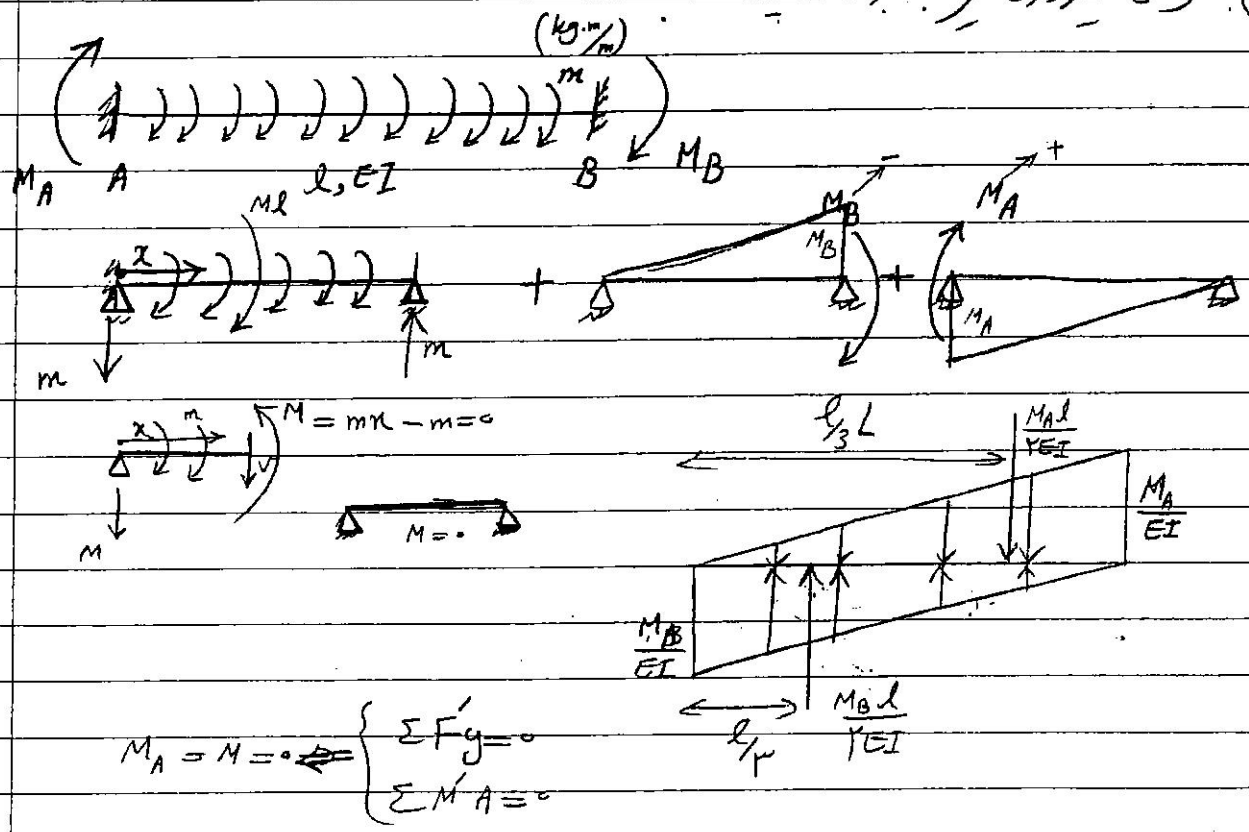 (kg.m/m)
m
M_A A l, EI B M_B
Ml
x
M_B -
M_B
+
+
M_A +
M_A
m
m
x m
M = mx - m = 0
V
M
M = 0
l/3 L
M_A l / ۲EI
M_A / EI
M_B / EI
l/۳
M_B l / ۲EI
M_A = M = 0 ⇐ { ΣF'y = 0
ΣM'A = 0